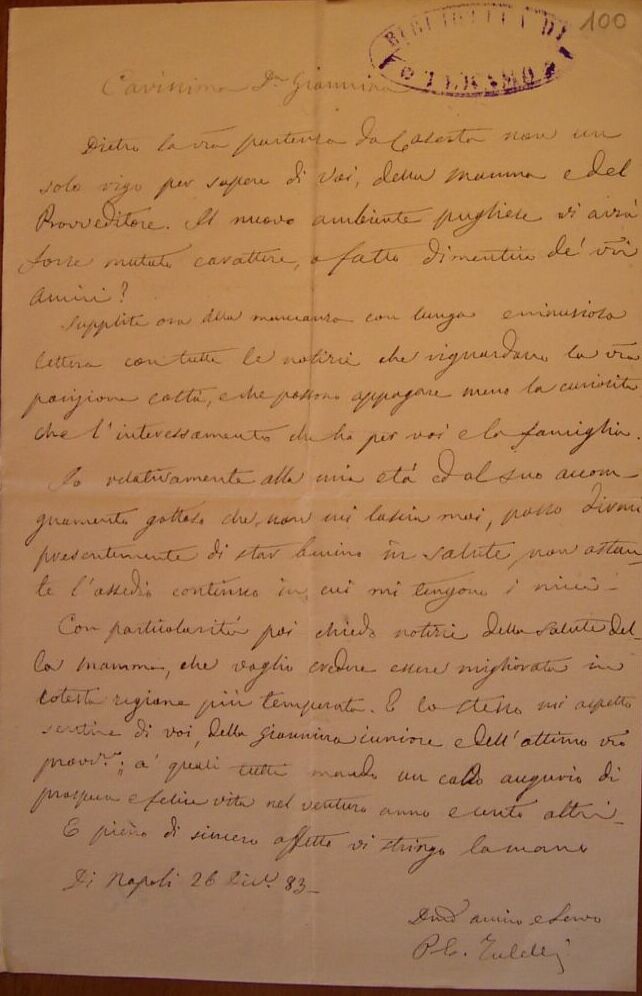 100
BIBLIOTECA DI
TERAMO
Carissima Da. Giannina
Dietro la vra partenza da Caserta non un
solo rigo per sapere di voi, della mamma e del
Provveditore. Il nuovo ambiente pugliese vi avrà
forse mutato carattere, o fatto dimentica de' vri
amici?
Supplite ora alla mancanza con lunga e minuziosa
lettera con tutte le notizie che riguardano la vra
posizione costà, e che possono appagare meno la curiosità
che l'interessamento che ho per voi e la famiglia.
Io relativamente alla mia età ed al suo accom-
gnamento gottoso che non mi lascia mai, posso dirvi
presentemente di star benino in salute, non ostan-
te l'assedio continuo in cui mi tengono i
Con particolarità poi chiedo notizie della salute del-
la mamma, che voglio credere essere migliorata in
cotesta regione più temperata. E lo stesso mi aspetto
sentire di voi, della Giannina iuniore e dell'ottimo vro
provv.re; a' quali tutti mando un caldo augurio di
prospera e felice vita nel venturo anno e cento altri-
E pieno di sincero affetto vi stringo la mano
Di Napoli 26 Dic. 83-
amico e servo
P. C.